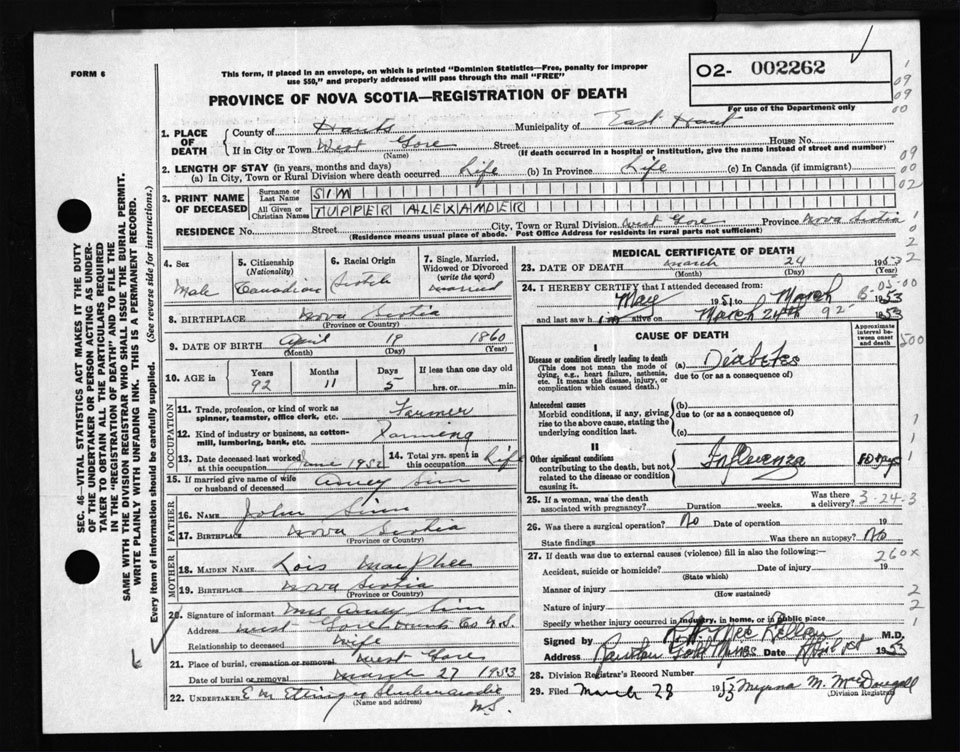 FORM 6
This form, if placed in an envelope, on which is printed "Dominion Statistics—Free, penalty for improper
use $50," and properly addressed will pass through the mail "FREE"
O2- 002262
For use of the Department only
PROVINCE OF NOVA SCOTIA—REGISTRATION OF DEATH
1. PLACE OF DEATH
County of Hants Municipality of East Hant
If in City or Town West Gore Street House No.
(Name) (If death occurred in a hospital or institution, give the name instead of street and number)
2. LENGTH OF STAY (in years, months and days)
(a) In City, Town or Rural Division where death occurred Life (b) In Province Life (c) In Canada (if immigrant)
3. PRINT NAME OF DECEASED
Surname or Last Name SIM
All Given or Christian Names TUPPER ALEXANDER
RESIDENCE No. Street City, Town or Rural Division West Gore Province Nova Scotia
(Residence means usual place of abode. Post Office Address for residents in rural parts not sufficient)
4. Sex Male
5. Citizenship (Nationality) Canadian
6. Racial Origin Scotch
7. Single, Married, Widowed or Divorced (write the word) Married
8. BIRTHPLACE Nova Scotia
(Province or Country)
9. DATE OF BIRTH April 19 1860
(Month) (Day) (Year)
10. AGE in Years Months Days If less than one day old
92 11 5 hrs. or min.
OCCUPATION
11. Trade, profession, or kind of work as spinner, teamster, office clerk, etc. Farmer
12. Kind of industry or business, as cotton-mill, lumbering, bank, etc. Farming
13. Date deceased last worked at this occupation June 1952 14. Total yrs. spent in this occupation Life
15. If married give name of wife or husband of deceased Sim
FATHER
16. NAME John Sim
17. BIRTHPLACE Nova Scotia
(Province or Country)
MOTHER
18. MAIDEN NAME Lois MacPhee
19. BIRTHPLACE Nova Scotia
(Province or Country)
20. Signature of informant Mrs Sim
Address West Gore Hants Co N.S.
Relationship to deceased Wife
21. Place of burial, cremation or removal West Gore
Date of burial or removal March 27 1953
22. UNDERTAKER E M Ettinger Shubenacadie
(Name and address) N.S.
MEDICAL CERTIFICATE OF DEATH
23. DATE OF DEATH March 24 1953
(Month) (Day) (Year)
24. I HEREBY CERTIFY that I attended deceased from:
May 1951 to March 1953
and last saw him alive on March 24th 1953
CAUSE OF DEATH
Approximate interval between onset and death
I
Disease or condition directly leading to death
(This does not mean the mode of dying, e.g., heart failure, asthenia, etc. It means the disease, injury, or complication which caused death.)
(a) Diabetes
due to (or as a consequence of)
Antecedent causes
Morbid conditions, if any, giving rise to the above cause, stating the underlying condition last.
(b)
due to (or as a consequence of)
(c)
II
Other significant conditions
contributing to the death, but not related to the disease or condition causing it.
Influenza 10 days
25. If a woman, was the death associated with pregnancy? Duration weeks. Was there a delivery? 3-24-3
26. Was there a surgical operation? No Date of operation 19
State findings Was there an autopsy? No
27. If death was due to external causes (violence) fill in also the following:—
260x
Accident, suicide or homicide? Date of injury 19
(State which)
Manner of injury
(How sustained)
Nature of injury
Specify whether injury occurred in industry, in home, or in public place
Signed by M.D.
Address Rawdon Gold Mines Date April 1st 1953
28. Division Registrar's Record Number
29. Filed March 28 1953 Myrna M. McDougall
(Division Registrar)
SEC. 46—VITAL STATISTICS ACT MAKES IT THE DUTY
OF THE UNDERTAKER OR PERSON ACTING AS UNDER-
TAKER TO OBTAIN ALL THE PARTICULARS REQUIRED
IN THE "REGISTRATION OF DEATH" AND TO FILE THE
SAME WITH THE DIVISION REGISTRAR WHO SHALL ISSUE THE BURIAL PERMIT.
WRITE PLAINLY WITH UNFADING INK. THIS IS A PERMANENT RECORD.
Every item of information should be carefully supplied. (See reverse side for instructions.)